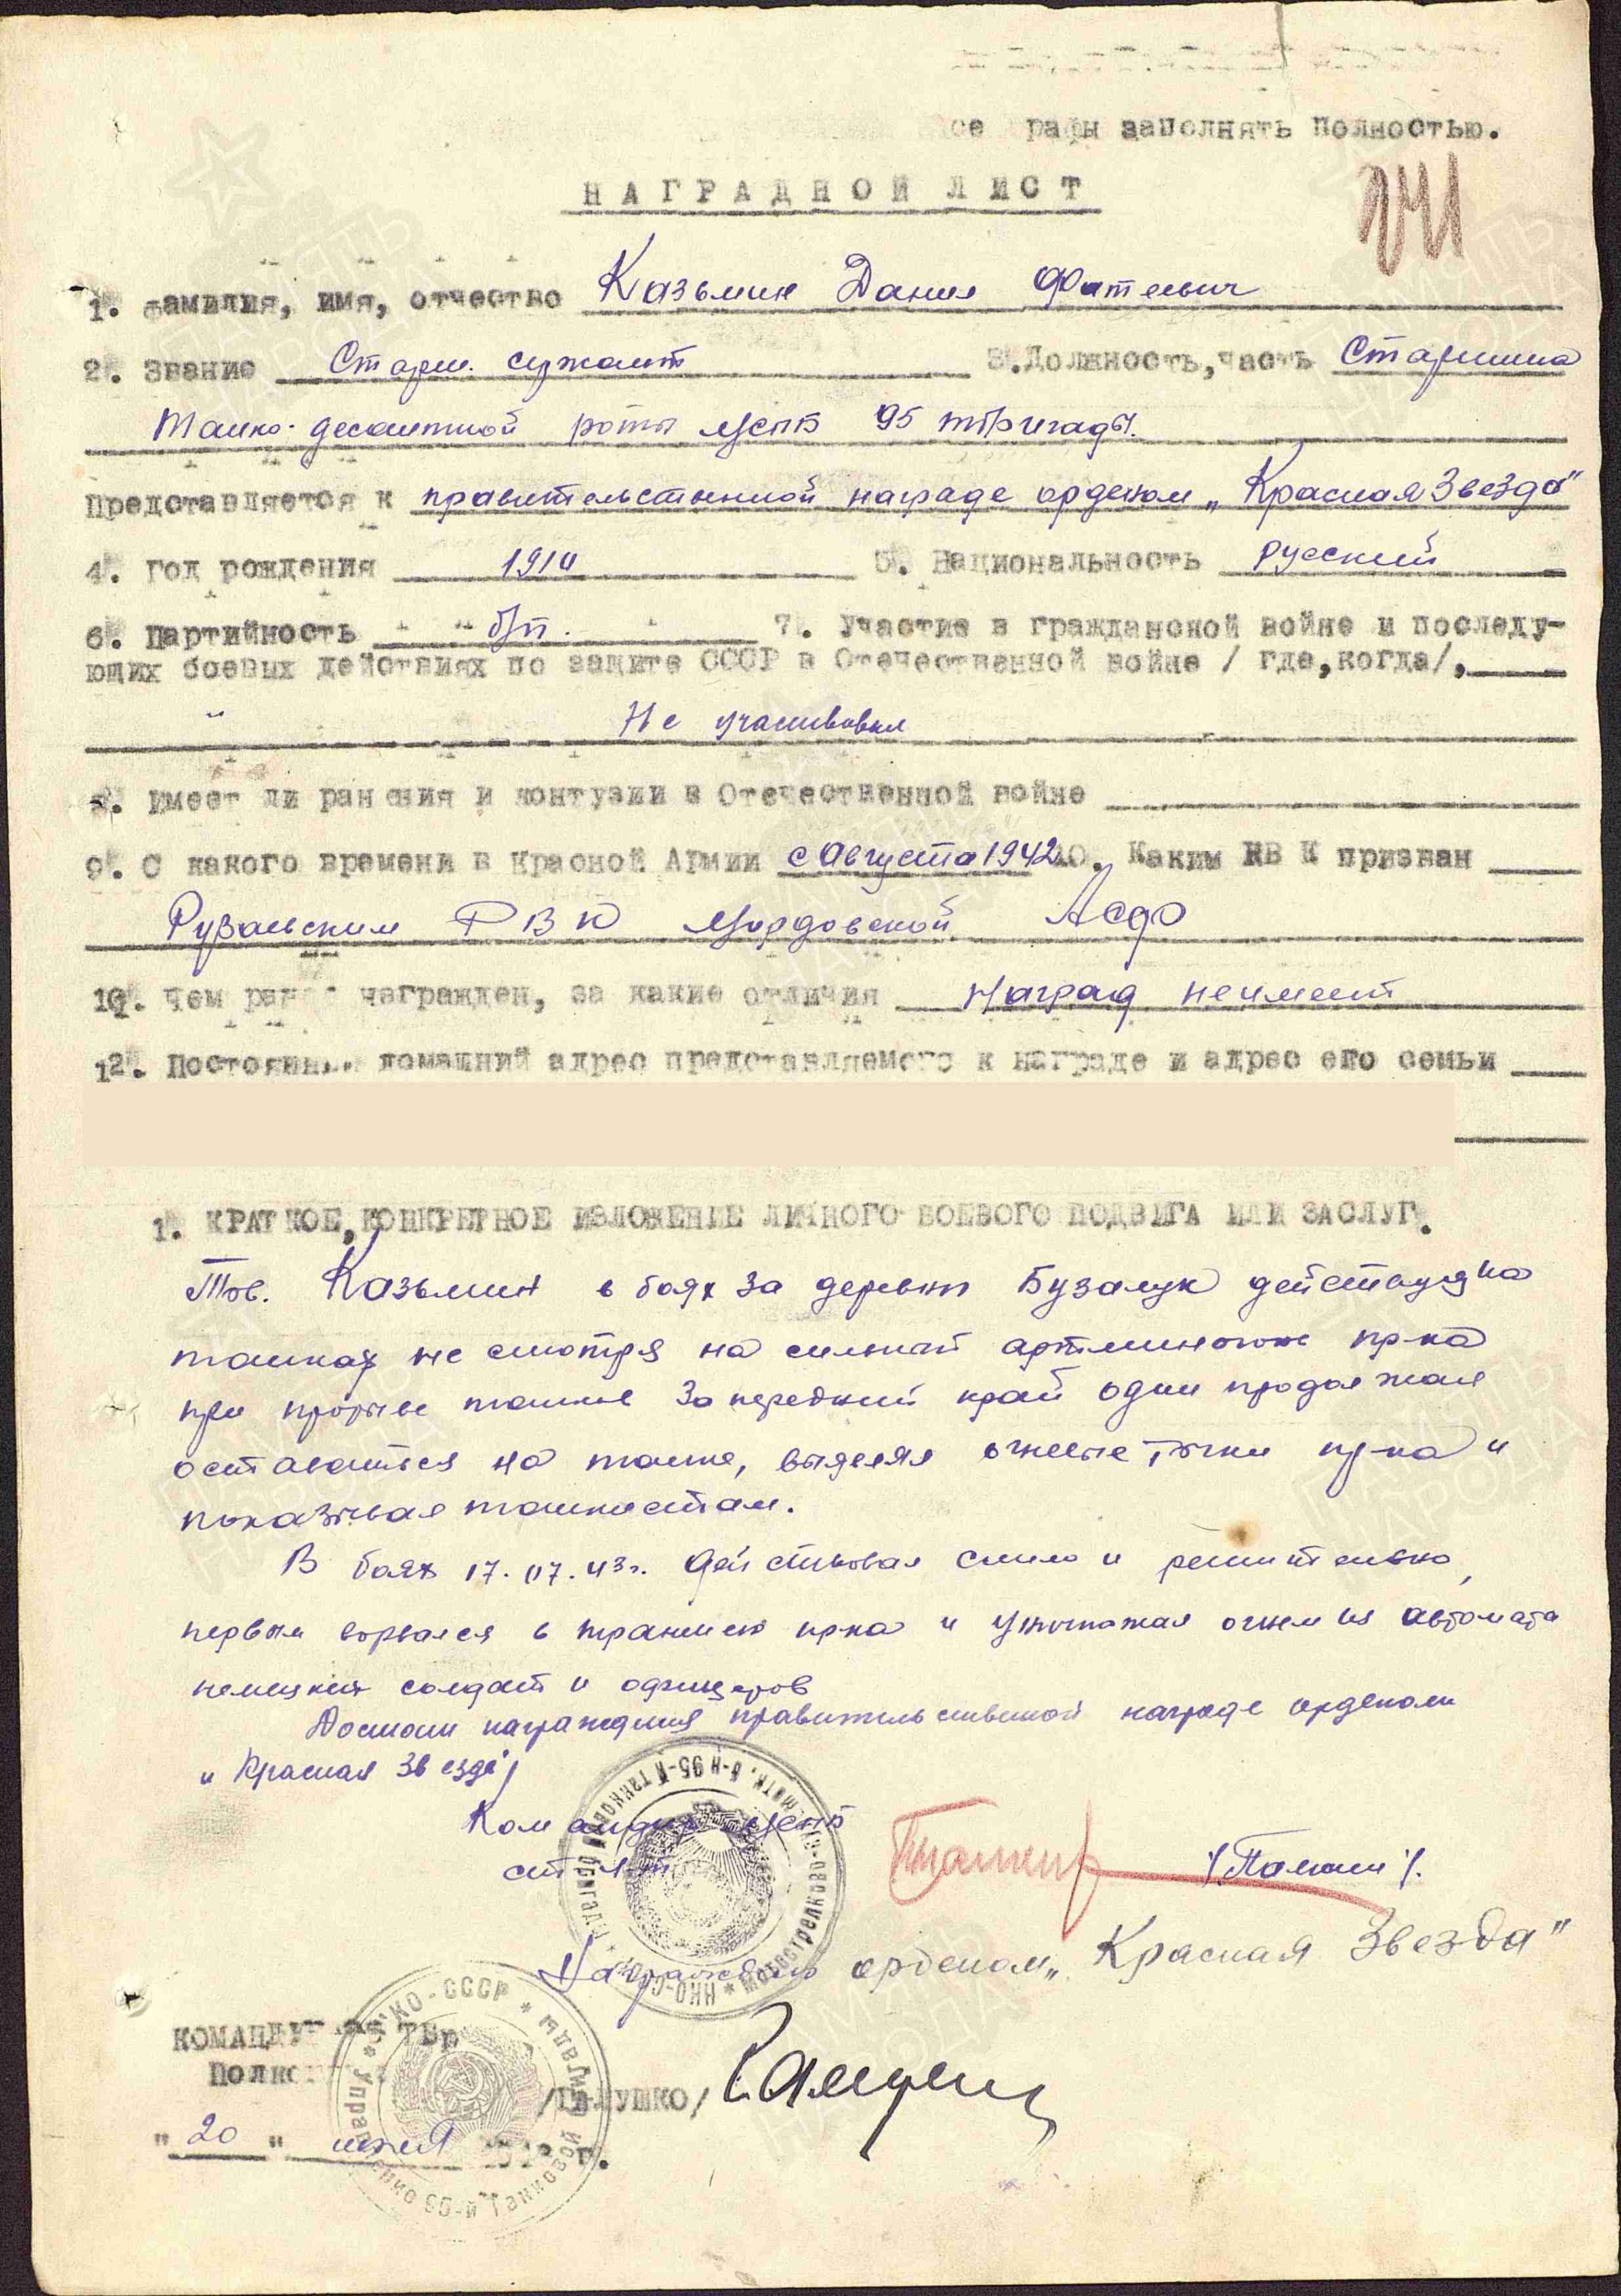 се рафы заполнять полностью.
241
НАГРАДНОЙ ЛИСТ
1. фамилия, имя, отчество Казьмин Данил
2. Звание Старш. сержант 3. Должность, часть Старшина
Танко-десантной роты МСПБ 95 тбригады.
Представляется к правительственной награде орденом „Красная Звезда"
4. год рождения 1910 5. Национальность Русский
6. Партийность б/п. 7. Участие в гражданской войне и последу-
ющих боевых действиях по защите СССР в Отечественной войне / где, когда/,
Не участвовал
8. Имеет ли ранения и контузии в Отечественной войне
9. С какого времени в Красной Армии с Августа 1942 10. Каким РВ К призван
Рузаевским РВК Мордовской АССР
10. Чем ранее награжден, за какие отличия Наград не имеет
12. Постоянный домашний адрес представляемого к награде и адрес его семьи
1. КРАТКОЕ, КОНКРЕТНОЕ ИЗЛОЖЕНИЕ ЛИЧНОГО БОЕВОГО ПОДВИГА ИЛИ ЗАСЛУГ.
Тов. Казьмин в боях за деревню Бузалук действуя на
танках не смотря на сильный артминогонь пр-ка
при прорыве танков за передний край один продолжал
оставаться на танке, выделял огневые точки пр-ка и
показывал танкистам.
В боях 17.07.43г. действовал смело и решительно,
первым ворвался в траншею пр-ка и уничтожал огнем из автомата
немецких солдат и офицеров
Достоин награждения правительственной награде орденом
„Красная Звезда"
Командир МСПБ
ст л-т
Награждаю орденом „Красная Звезда"
КОМАНДУ ТБр
Полко
/ГАЛУШКО/
"20" июля г.
НКО-СССР * Управление 95-й Танковой бригады